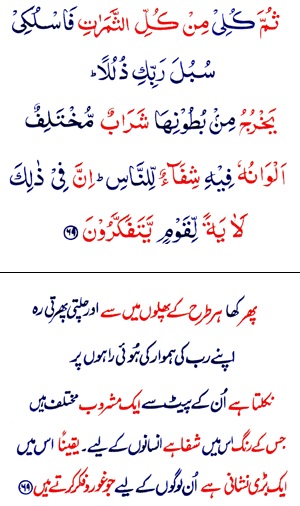 ثُمَّ كُلِىْ مِنْ كُلِّ الثَّمَرٰتِ فَاسْلُكِىْ
سُبُلَ رَبِّكِ ذُلُلًا ؕ
يَخْرُجُ مِنْۢ بُطُوْنِهَا شَرَابٌ مُّخْتَلِفٌ
اَلْوَانُهٗ فِيْهِ شِفَآءٌ لِّلنَّاسِ ؕ اِنَّ فِىْ ذٰ لِكَ
لَاٰ يَةً لِّقَوْمٍ يَّتَفَكَّرُوْنَ ﴿۶۹﴾
پھر کھا ہر طرح کے پھلوں میں سے اور چلتی پھرتی رہ
اپنے رب کی ہموار کی ہُوئی راہوں پر
نکلتا ہے اُن کے پیٹ سے ایک مشروب مختلف ہیں
جس کے رنگ اس میں شفا ہے انسانوں کے لیے۔ یقیناً اس میں
ایک بڑی نشانی ہے اُن لوگوں کے لیے جو غور و فکر کرتے ہیں ﴿۶۹﴾